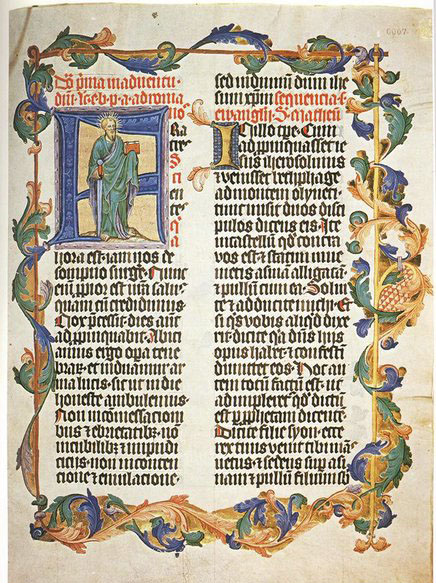 Do pma in adventu
dni lc eb p a ad roma
F Ra
tre
Sci
en
te
hora est iam nos de
sompno surge Nunc
em ppior est nra salus
quam cu credidimus
Nox pcessit dies aut
adppinquabit Abicia
mus ergo opa tene
brar et induamur ar
ma lucis sic ut in die
honeste ambulemus
Non in comessacioni
bus et ebrietatibz no
in cubilibz et inpudi
cicijs non in conten
cione et emulacione
sed induimini dnm ihe
sum xpm sequencia s
ewangelij S matheu
In illo tpe Cum
adppinquasset ie
sus iherosolimis
et venisset bethphage
ad montem olyueti
tunc misit duos disci
pulos dicens eis Ite
in castellum qd contra
vos est et statim inue
nietis asinam alligata
et pullu cum ea Soluite
et adducite michi Et
si qs vobis aliqd dixe
rit dicite qa dns hijs
opus habet et confestim
dimittet eos Hoc aut
tem totu factum est ut
adimpleret qd dictu
est p pphetam dicente
Dicite filie syon ecce
rex tuus venit tibi man
suetus et sedens sup asi
nam et pullum filium sb